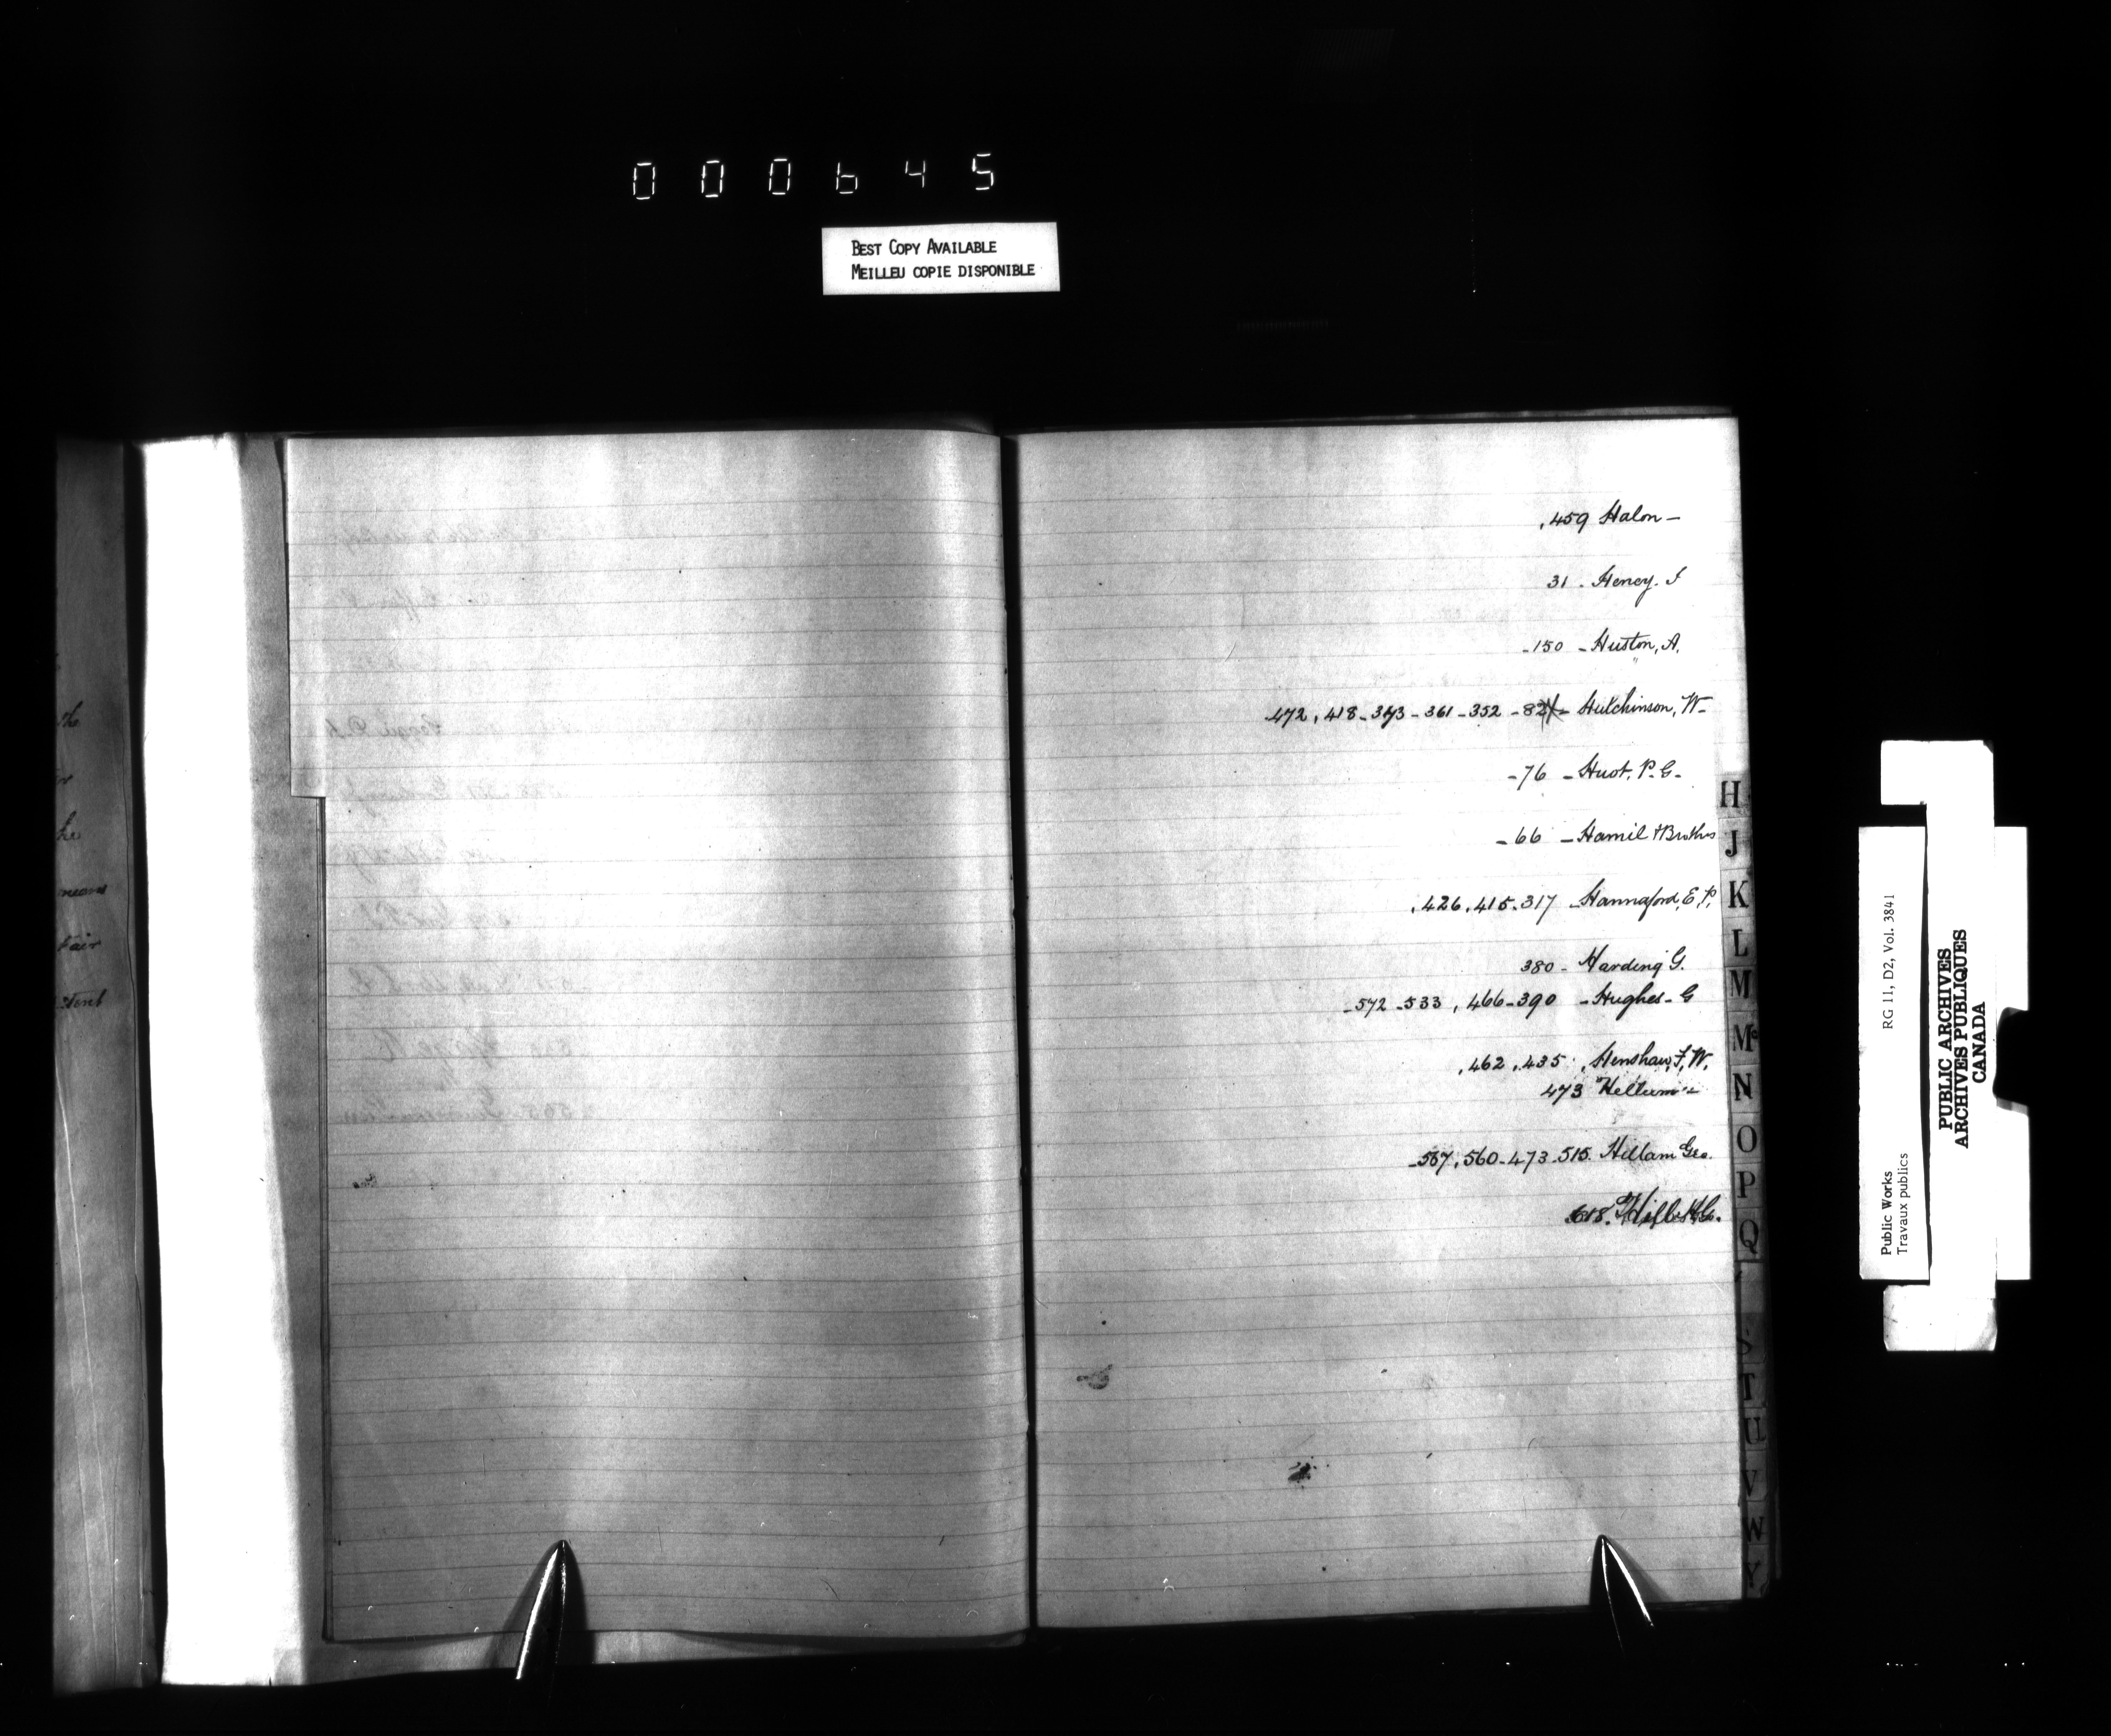 000645
BEST COPY AVAILABLE
MEILLEU COPIE DISPONIBLE
the
he
means
Fair
tent
.459 Halon -
31 - Heney. J
-150 - Huston, A.
472, 418-373-361-352-82 - Hutchinson, W-
-76 - Huot. P. G-
-66 - Hamil & Brothers
.426.415.317 - Hannaford, E. P.
380 - Harding G.
-572-533, 466-390 - Hughes - G
.462.435. Henshaw, F. W.
473 Hellum -
-567, 560-473-515. Hillam Geo.
618.
H
J
K
L
M
Mc
N
O
P
Q
S
T
U
V
W
Y
Public Works
Travaux publics
RG 11, D2, Vol. 3841
PUBLIC ARCHIVES
ARCHIVES PUBLIQUES
CANADA